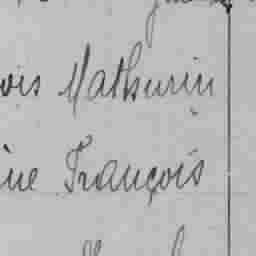 ois Mathurin
ine François